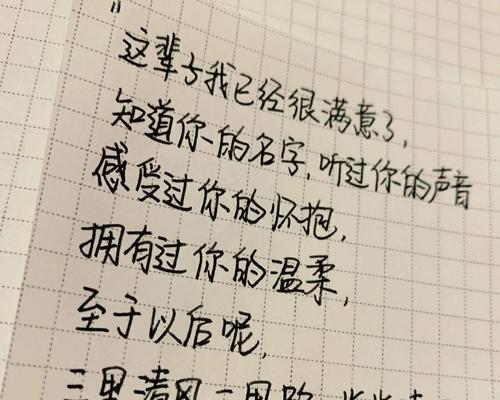 "
这辈子我已经很满意了,
知道你的名字,听过你的声音
感受过你的怀抱,
拥有过你的温柔,
至于以后呢,
三里清风三里路